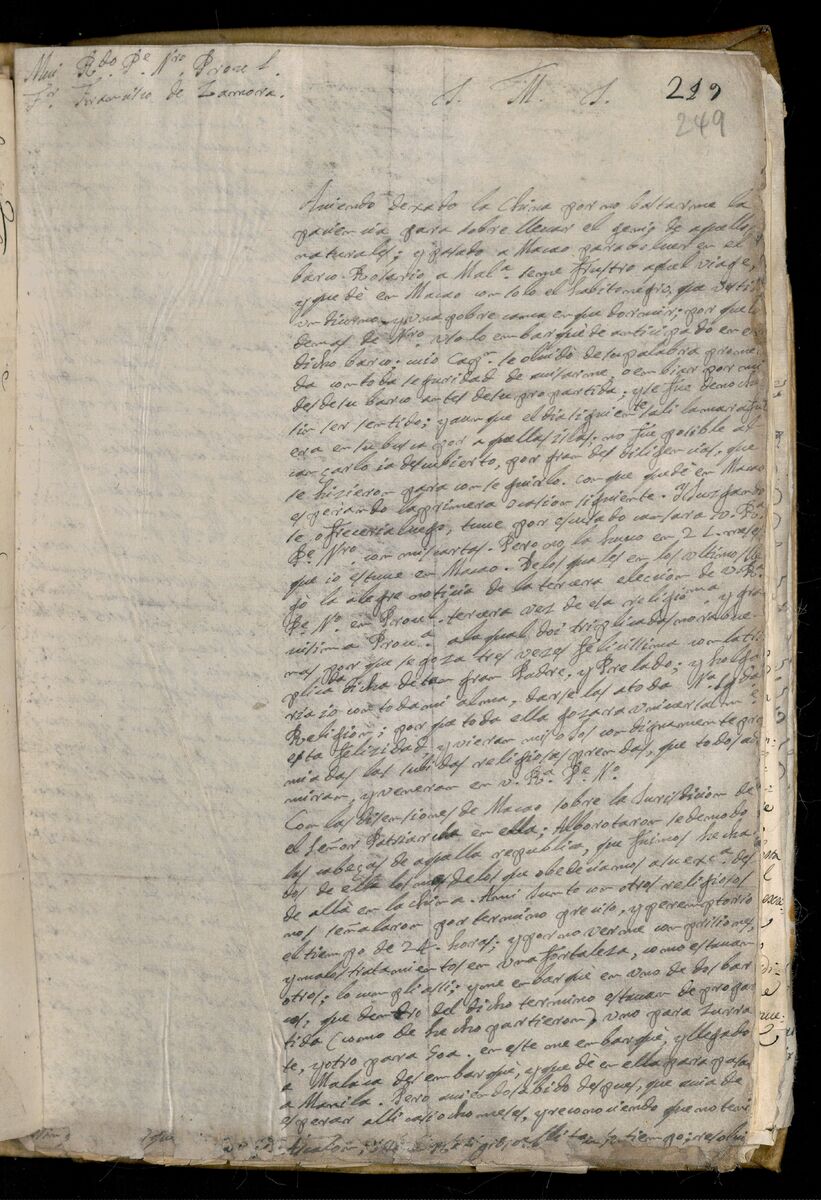 Mui Rdo. Pe. Nro. Provl.
Fr. Francisco de Zamora.
J. M. J.
219
249
Auiendo dexado la China por no bastarme la
paciencia para sobre lleuar el genio de aquellos
naturales; y pasado a Macao para boluer en el
barco Rosario, a Mala. seme frustro aquel viage,
y quedè en Macao con solo el habito negro, que vesti
un dicono, y una pobre cama en que dormir; por que lo
demas de Nro. uso lo embarquè de anticipado en el
dicho barco; cuio Capn. se oluidò de su palabra prome-
da con toda seguridad de auisarme, o embiar por mi
desde su barco antes de su propartida; y se fue de noche
sin ser sentido; y aunque el dia siguiente sali a la mar a
en su busca por aquellas islas, no fue posible al-
cançarlo ia descubierto, por grandes diligencias, que
se hizieron para conseguirlo. Con que quedè en Macao
esperando la primera ocasion siguiente. Y Juzgando
se ofreceria luego, tuue por escusado cansar a V. Ra.
Pe. Nro. con mis cartas. Pero no la huuo en 24 meses
que io estuue en Macao. De los quales en los vltimos lle-
gò la alegre noticia de la tercera eleccion de V. Ra.
Pe. No. en Provl. tercera vez de esa religiosma. y gra-
uisima Proua. a la qual doi triplicados norabue-
nas por que se goza tres vezes felicissima con la tri-
plicada dicha de tan gran Padre, y Prelado; y holga-
ria io con toda mi alma, darselas a toda Na. sagrada
Religion; por que toda ella gozara vniuersalmte.
esta felizidad y vieran mis ojos condignamente pre-
miadas las subidas religiosas prendas, que todos ad-
miran, y veneran en V. Ra. Pe. No.
Con las disensiones de Macao sobre la Jurisdicion de
el Señor Patriarcha en ella; Alborotaron se de modo
las cabeças de aqella republica, que fuimos hecha-
dos de ella los mas de los que obedeciamos a su exca. des-
de allà en la China. A mi junto con otros religiosos
nos señalaron por termino preciso, y peremptorio
el tiempo de 24 horas; y por no verme con prisiones,
y malos tratamientos en vna fortaleza, como estauan
otros; lo cumpli assi; y me embarquè en vno de dos bar
cos; que dentro del dicho termino estauan de propar-
tida (como de hecho partieron) vno para Surra
te, y otro para Goa. en este me embarquè, y llegado
a Malaca desembarquè, y quedè en ella para pasar
a Manila. Pero auiendo sabido despues, que auia de
esperar alli casi ocho meses, y reconociendo que no teni